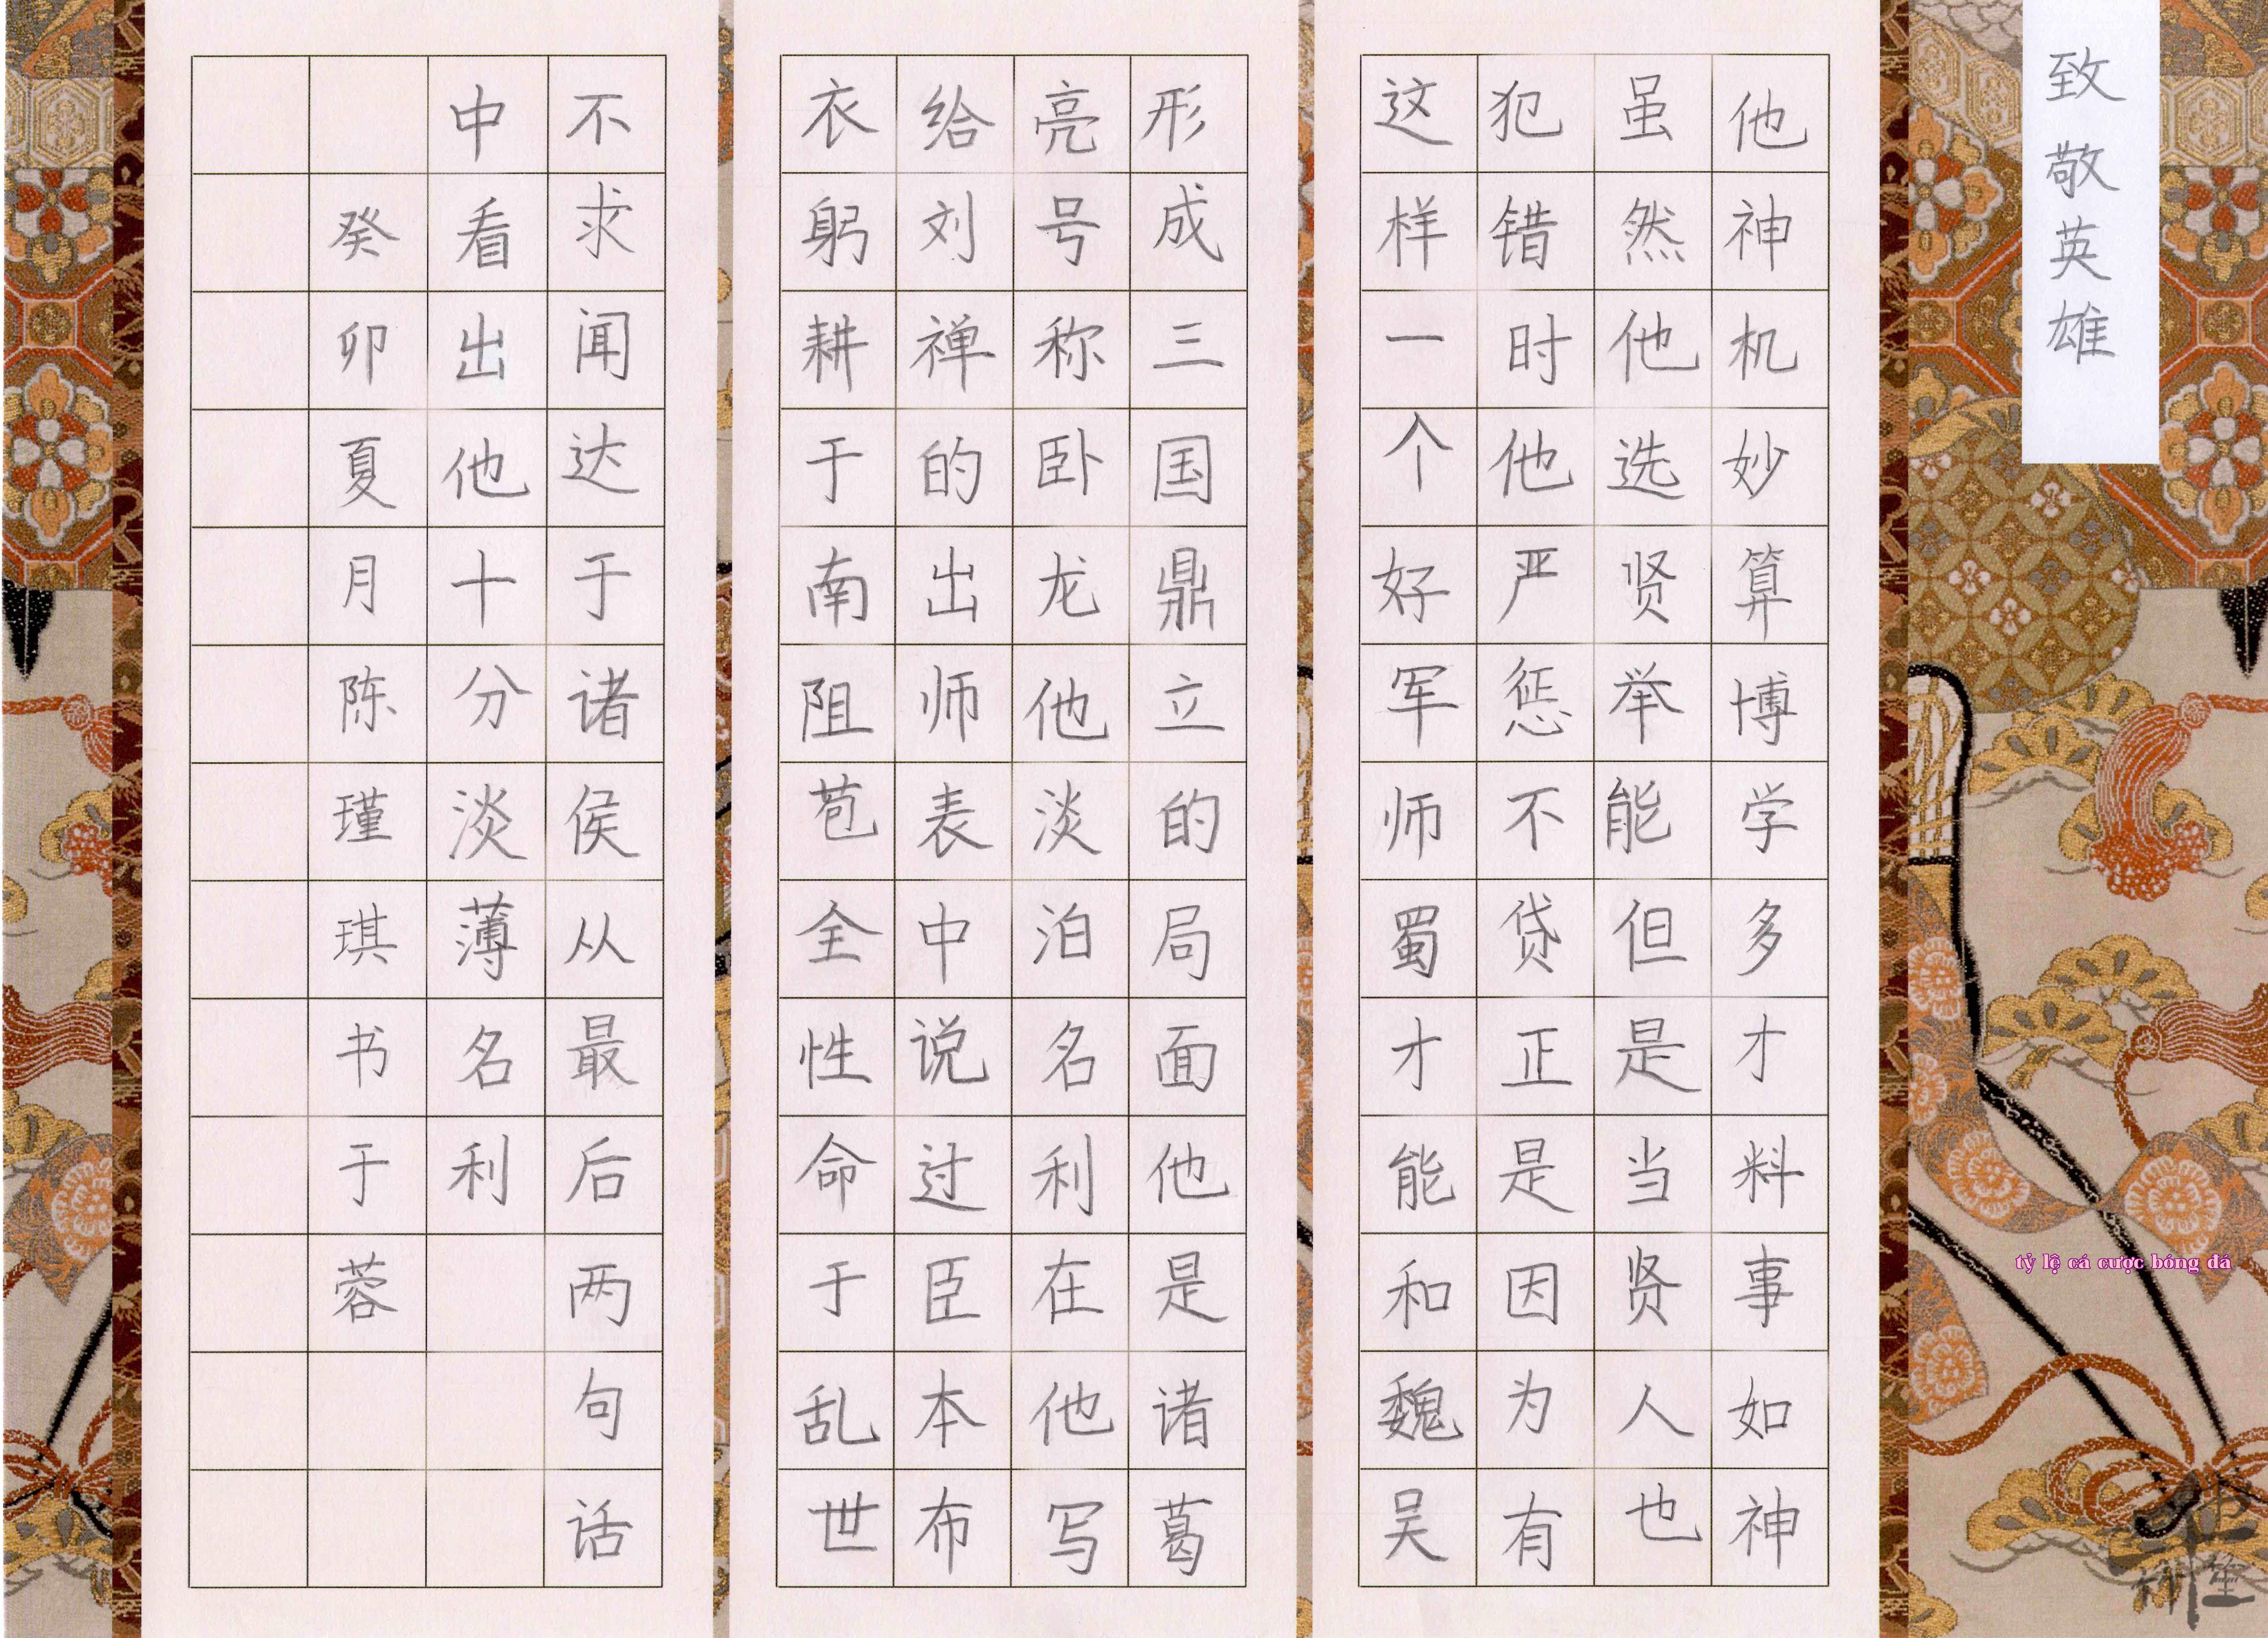 致敬英雄
他神机妙算博学多才料事如神
虽然他选贤举能但是当贤人也
犯错时他严惩不贷正是因为有
这样一个好军师蜀才能和魏吴
形成三国鼎立的局面他是诸葛
亮号称卧龙他淡泊名利在他写
给刘禅的出师表中说过臣本布
衣躬耕于南阻苞全性命于乱世
不求闻达于诸侯从最后两句话
中看出他十分淡薄名利
癸卯夏月陈瑾琪书于蓉
tỷ lệ cá cược bóng đá